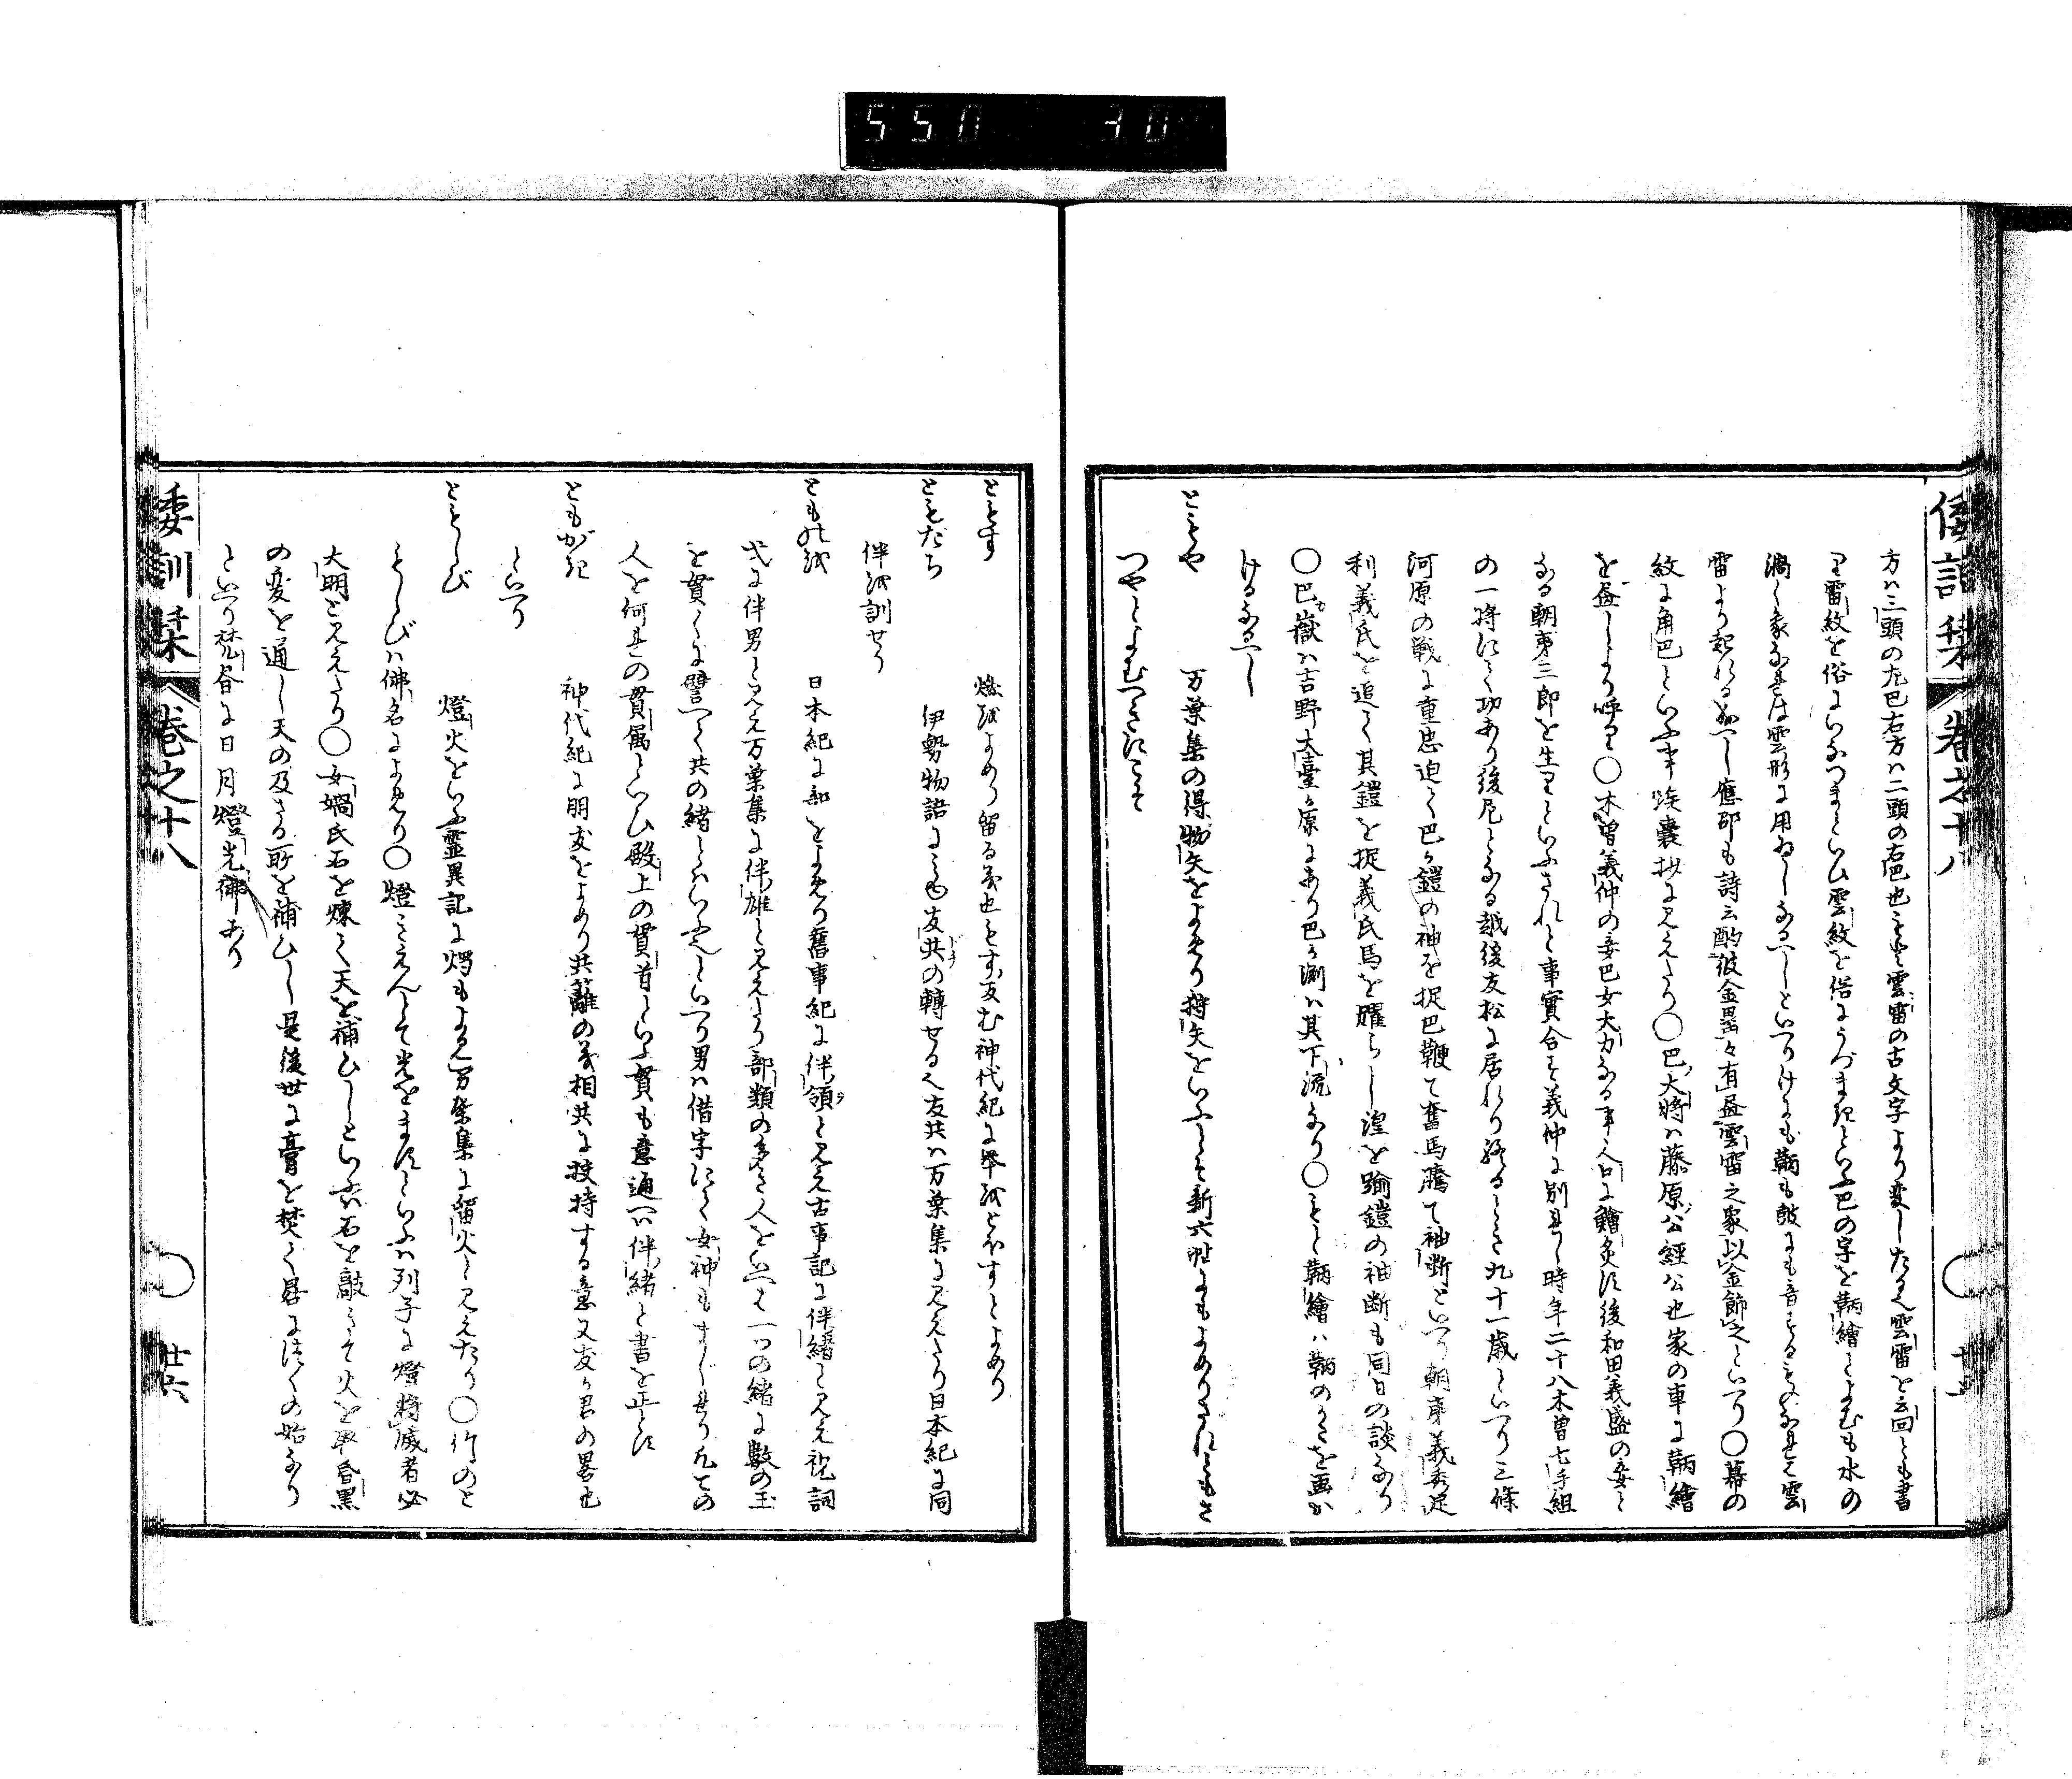 方ハ三頭の左巴右方ハ二頭の右巴也もと雲雷の古文字より変したる也雲雷を云回とも書
り雷紋を俗にいなつまといひ雲紋を俗にうづまきといふ巴の字を鞆繪とよむも水の
渦く象なれは雲形に用ゐしなるへしといへりけにも鞆も鼓にも音するものなれは雲
雷より起れる如へし應邵も詩云酌彼金罍々有畫雲雷之象以金飾之といへり〇幕の
紋に角巴といふ事埃嚢抄に見えたり〇巴大将ハ藤原公經公也家の車に鞆繪
を畫しより呼り〇木曽義仲の妾巴女大力なる事人口に鱠炙す後和田義盛の妾と
なる朝夷三郎を生りといふされと事實合はす義仲に別れし時年二十八木曽七手組
の一将にて功あり後尼となる越後友松に居れり終るとき九十一歳といへり三條
河原の戦に重忠迫て巴か鎧の袖を捉巴鞭て奮馬騰て袖断といへり朝夷義秀足
利義氏を追て其鎧を捉義氏馬を躍らし湟を踰鎧の袖断も同日の談なり
〇巴か嶽ハ吉野大臺か原にあり巴か渕ハ其下流なり〇もと鞆繪ハ鞆のかたを画か
けるなるへし
ともや　万葉集の得物矢をよめり猎矢をいふとそ新六帖にもよめりされともさ
つやとよむへきにこそ
倭訓栞　巻之十八
ともす　燃をよめり留る義也もす反む神代紀に擧をとぼすとよめり
ともだち　伊勢物語にみゆ友共の轉せる也友共ハ万葉集に見えたり日本紀に同
伴を訓せり
とものを　日本紀に部をよめり舊事紀に伴領と見え古事記に伴緒と見え祝詞
式に伴男と見え万葉集に伴雄と見えたり部類の多き人をいへは一つの緒に數の玉
を貫くに譬へて共の緒とハいふ也といへり男ハ借字にて女神もましれり凡その
人を何れの貫属といひ殿上の貫首といふ貫も意通へハ伴緒と書を正とす
ともがき　神代紀に朋友をよめり共籬の義相共に扶持する意又友か君の畧也
といへり
ともしび　燈火をいふ霊異記に燭もよめり万葉集に留火と見えたり〇竹のと
もしびハ佛名によめり〇燈きえんとて光をますといふハ列子に燈将滅者必
大明と見えたり〇女媧氏石を煉て天を補ひしといふハ石を敲きて火を取昏黒
の変を通し天の及さる所を補ひし是後世に膏を焚て晷に継くの始なり
といへり梵昏に日月燈光佛あり
倭訓栞　巻之十八　〇　廿六